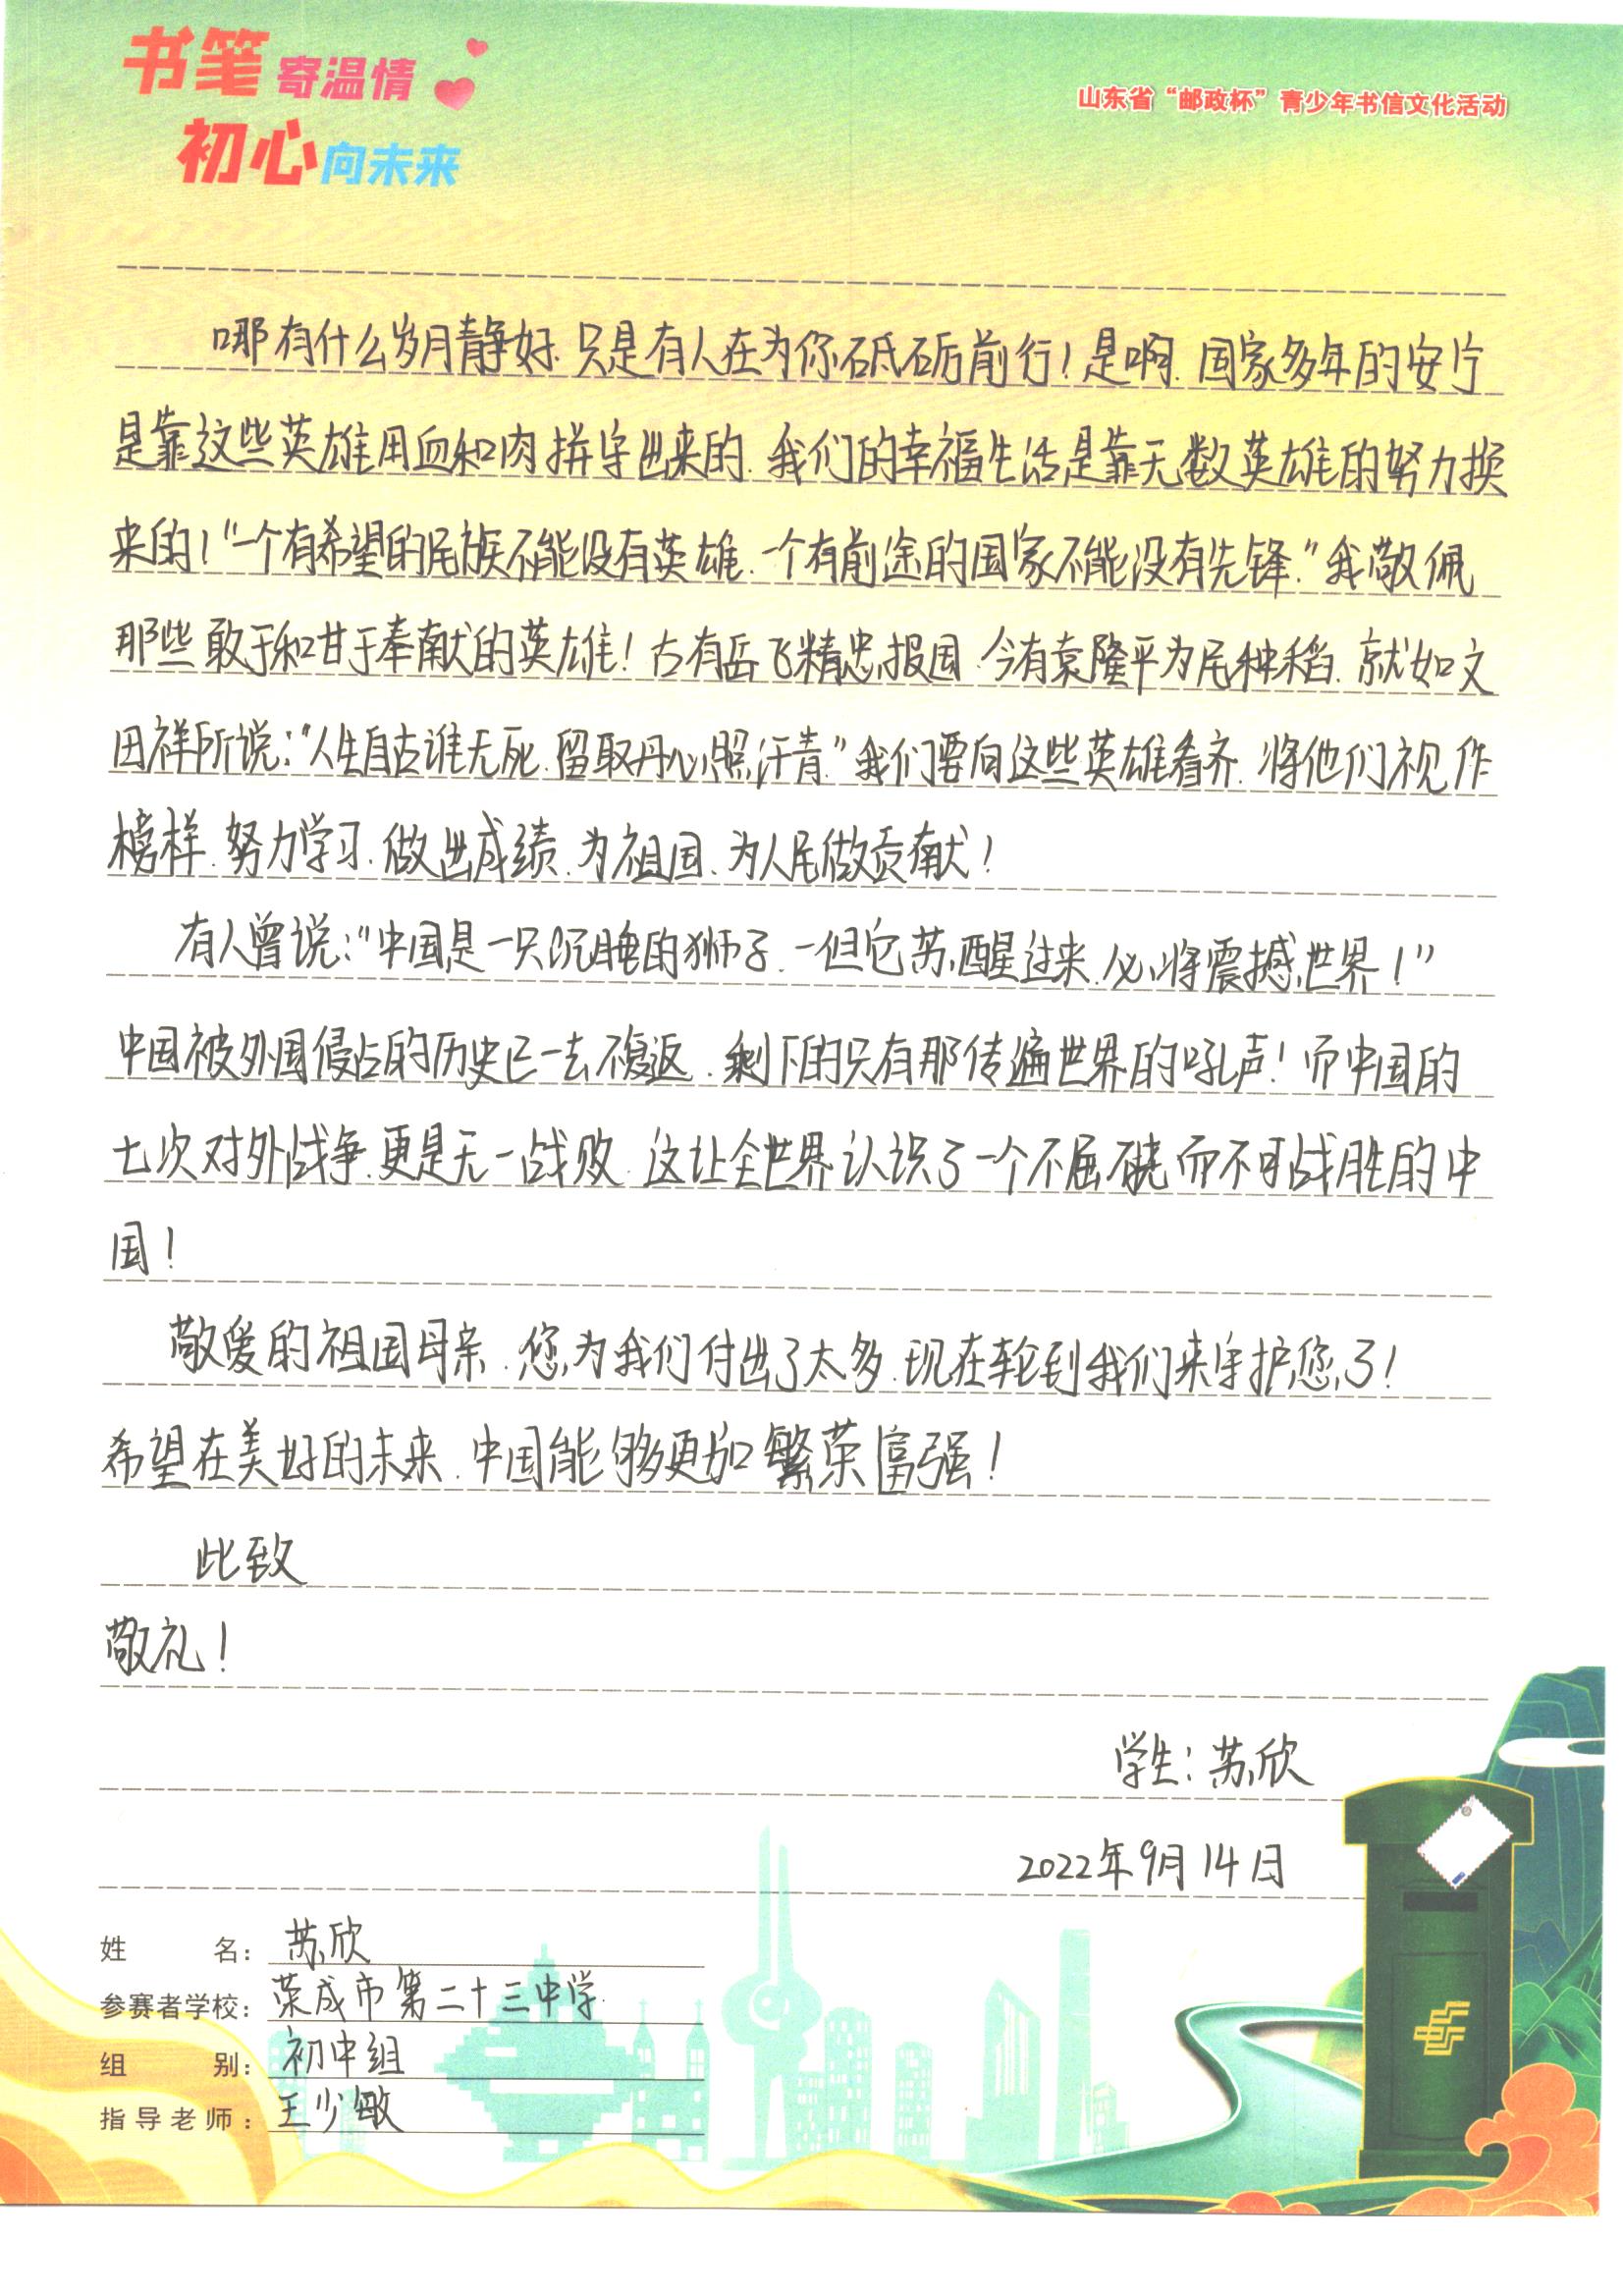 书笔寄温情
初心向未来
山东省“邮政杯”青少年书信文化活动
哪有什么岁月静好.只是有人在为你砥砺前行！是啊.国家多年的安宁
是靠这些英雄用血和肉拼守出来的.我们的幸福生活是靠无数英雄的努力换
来的！“一个有希望的民族不能没有英雄.一个有前途的国家不能没有先锋.”我敬佩
那些敢于和甘于奉献的英雄！古有岳飞精忠报国.今有袁隆平为民种稻.就如文
田祥所说：“人生自古谁无死.留取丹心照汗青.”我们要向这些英雄看齐.将他们视作
榜样.努力学习.做出成绩.为祖国.为人民做贡献！
有人曾说：“中国是一只沉睡的狮子.一但它苏醒过来.必将震撼世界！”
中国被外国侵占的历史已一去不復返.剩下的只有那传遍世界的吼声！而中国的
七次对外战争.更是无一战败.这让全世界认识了一个不屈不挠而不可战胜的中
国！
敬爱的祖国母亲.您为我们付出了太多.现在轮到我们来守护您了！
希望在美好的未来.中国能够更加繁荣富强！
此致
敬礼！
学生：苏欣
2022年9月14日
姓名：苏欣
参赛者学校：荣成市第二十三中学
组别：初中组
指导老师：王少敏